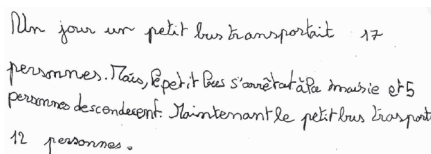 Un jour un petit bus transportait 17
personnes. Mais, le petit bus s'arrêtat à la mairie et 5
personnes descenderent. Maintenant le petit bus trasport
12 personnes.